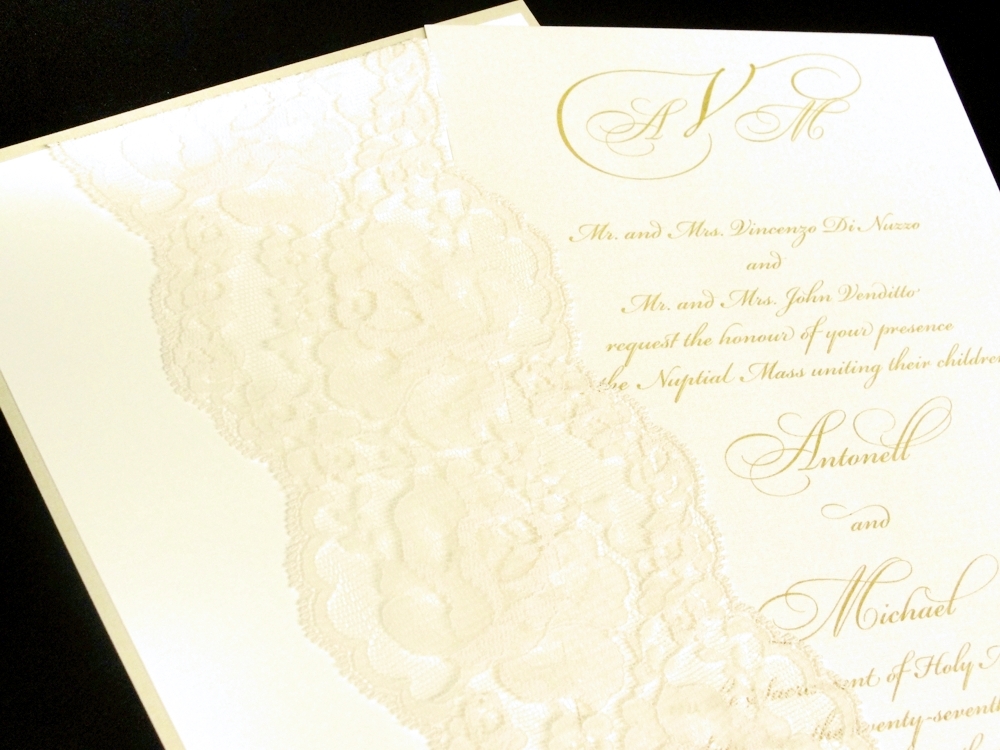 A V M
Mr. and Mrs. Vincenzo Di Nuzzo
and
Mr. and Mrs. John Venditto
request the honour of your presence
the Nuptial Mass uniting their children
Antonell
and
Michael
of Holy
twenty-seventh